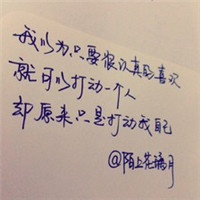 我以为只要很认真的喜欢
就可以打动一个人
却原来只是打动我自己
@陌上花满月